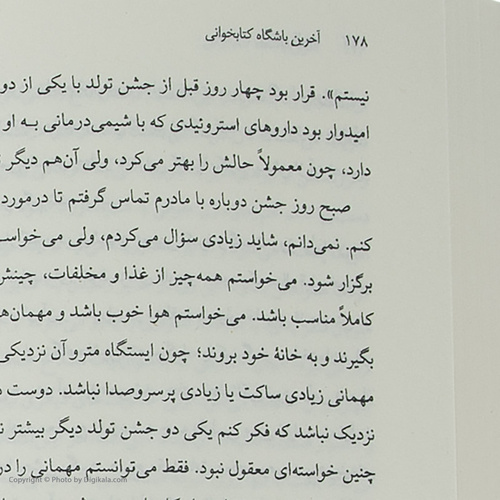 ۱۷۸ آخرین باشگاه کتابخوانی
نیستم». قرار بود چهار روز قبل از جشن تولد با یکی از دو
امیدوار بود داروهای استروئیدی که با شیمی‌درمانی به او
دارد، چون معمولاً حالش را بهتر می‌کرد، ولی آن‌هم دیگر
صبح روز جشن دوباره با مادرم تماس گرفتم تا درمورد
کنم. نمی‌دانم، شاید زیادی سؤال می‌کردم، ولی می‌خواسـ
برگزار شود. می‌خواستم همه‌چیز از غذا و مخلفات، چینش
کاملاً مناسب باشد. می‌خواستم هوا خوب باشد و مهمان‌ها
بگیرند و به خانهٔ خود بروند؛ چون ایستگاه مترو آن نزدیکی
مهمانی زیادی ساکت یا زیادی پرسروصدا نباشد. دوست
نزدیک نباشد که فکر کنم یکی دو جشن تولد دیگر بیشتر
چنین خواسته‌ای معقول نبود. فقط می‌توانستم مهمانی را در
Copyright © Photo by Digikala.com